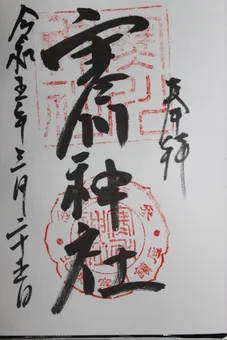 奉拝
寒川神社
令和五年三月二十五日